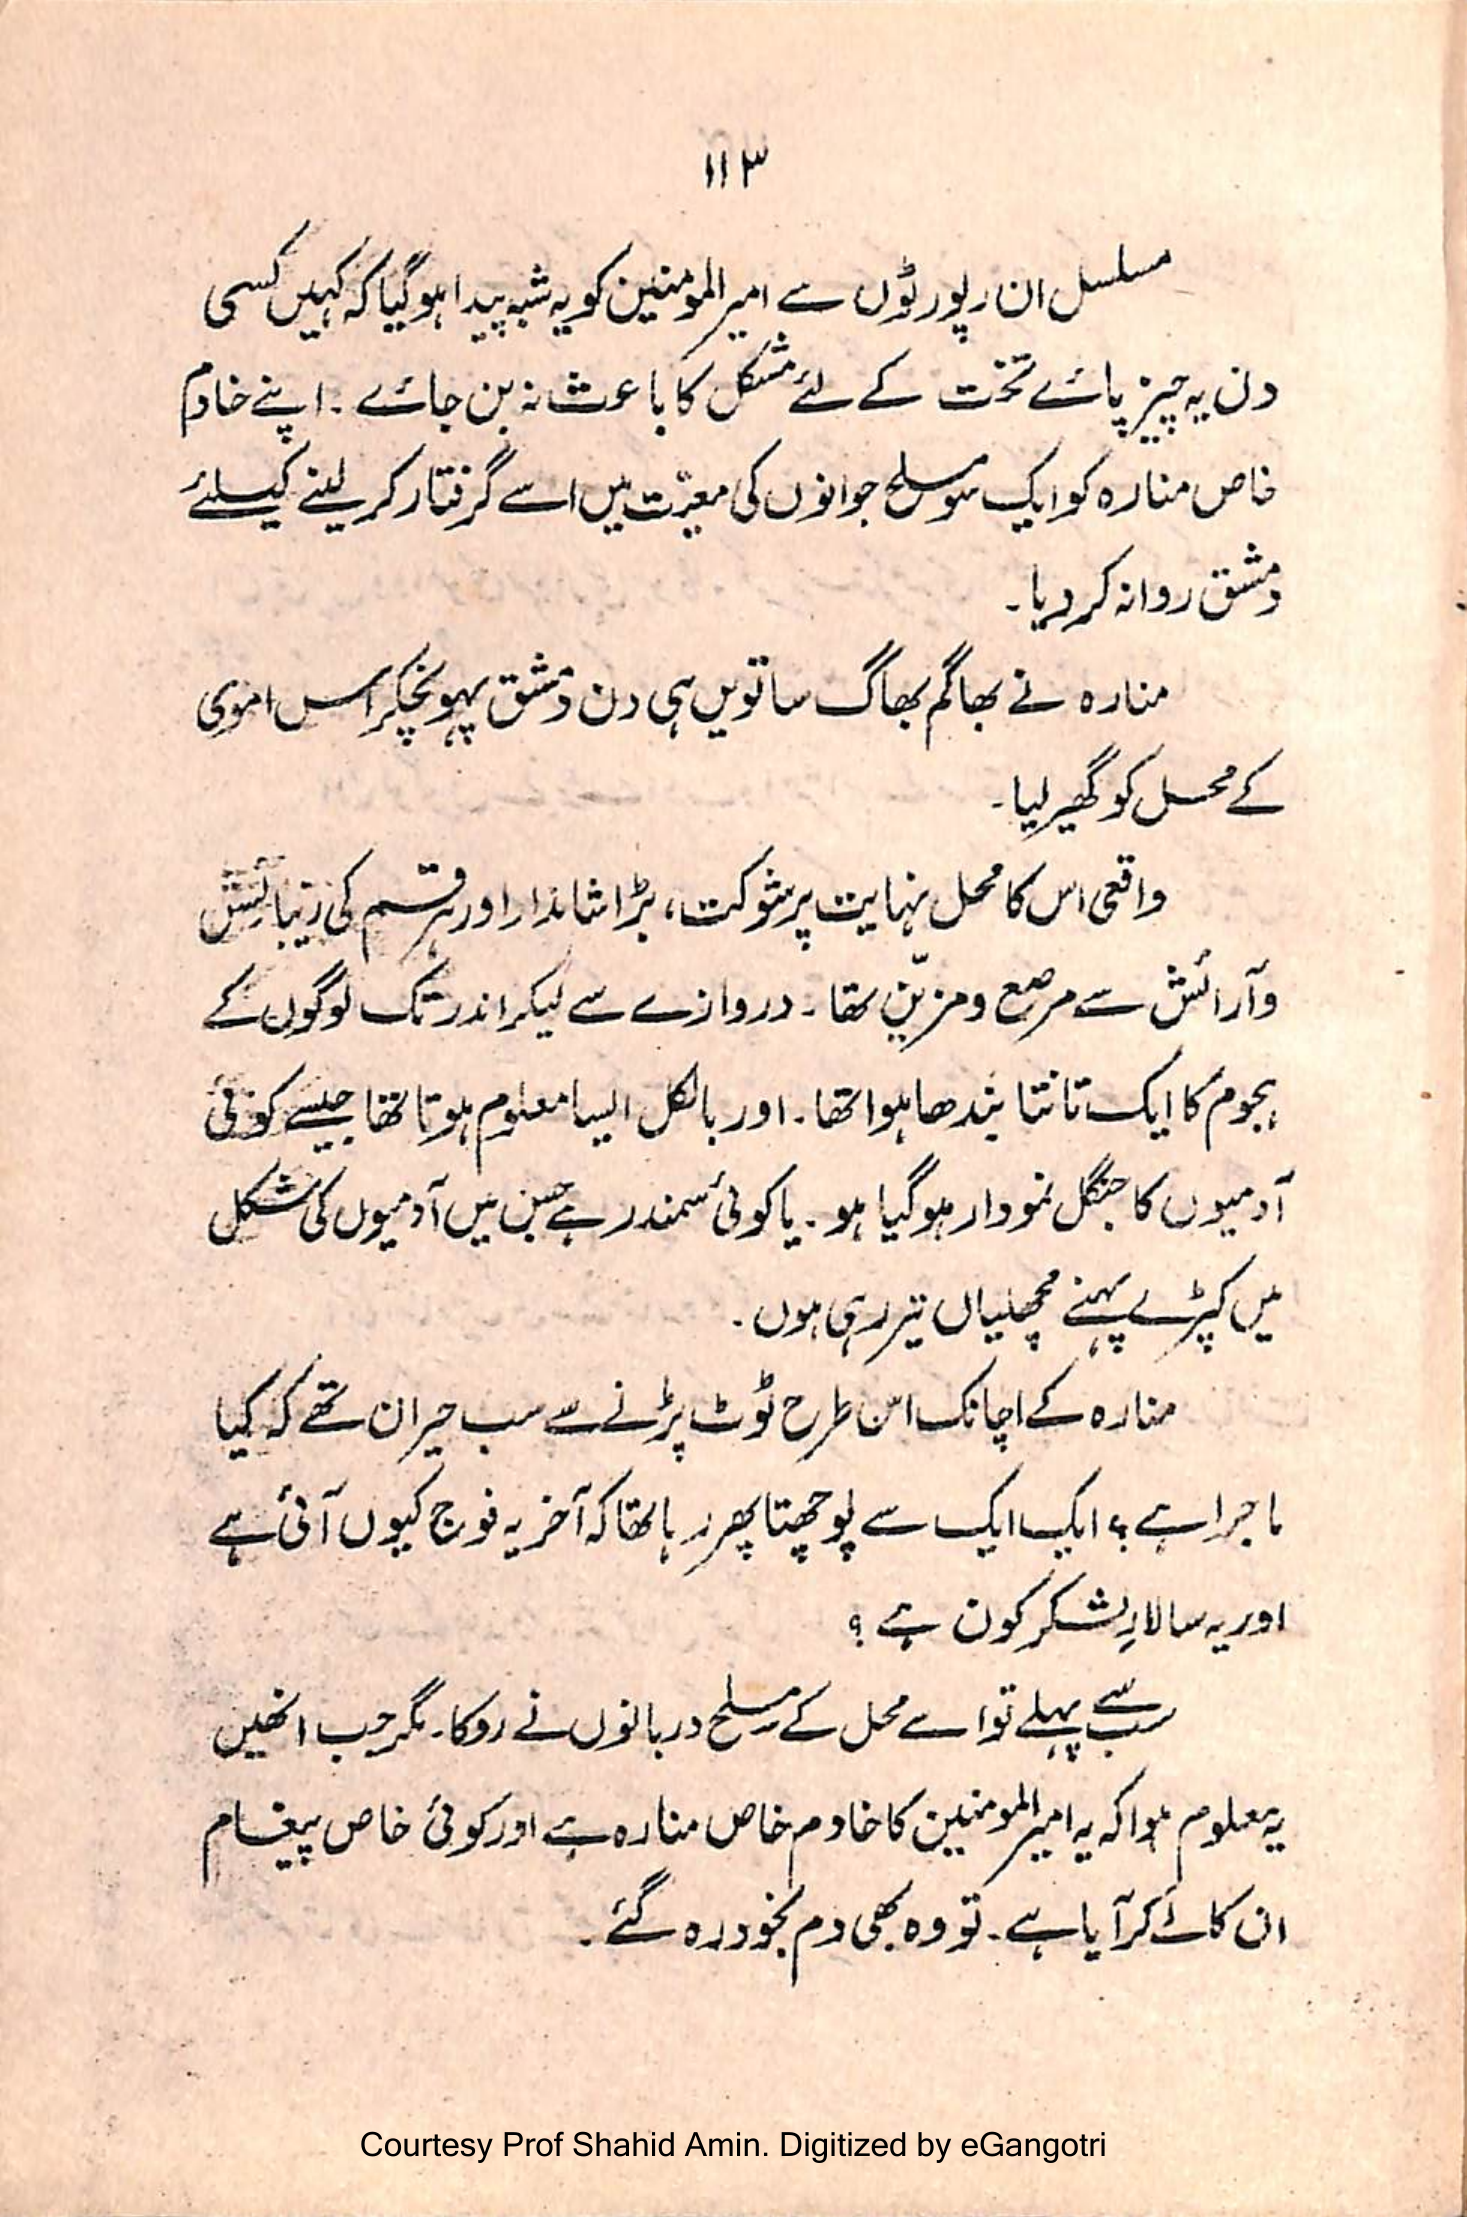 ۱۱۳
مسلسل ان رپورٹوں سے امیر المومنین کو یہ شبہ پیدا ہوگیا کہ کہیں کسی
دن یہ چیز پائے تخت کے لئے مشکل کا باعث نہ بن جائے ۔ اپنے خادم
خاص منارہ کو ایک سو مسلح جوانوں کی معیّت میں اسے گرفتار کر لینے کیلئے
دمشق روانہ کر دیا ۔
منارہ نے بھاگم بھاگ ساتویں ہی دن دمشق پہونچکر اس اموی
کے محل کو گھیر لیا ۔
واقعی اس کا محل نہایت پرشوکت، بڑا شاندار اور ہر قسم کی زیبائش
و آرائش سے مرصع و مزیّن تھا ۔ دروازے سے لیکر اندر تک لوگوں کے
ہجوم کا ایک تانتا بندھا ہوا تھا ۔ اور بالکل ایسا معلوم ہوتا تھا جیسے کوئی
آدمیوں کا جنگل نمودار ہوگیا ہو ۔ یا کوئی سمندر ہے جس میں آدمیوں کی شکل
میں کپڑے پہنے مچھلیاں تیر رہی ہوں ۔
منارہ کے اچانک اس طرح ٹوٹ پڑنے سے سب حیران تھے کہ کیا
ماجرا ہے ؟ ایک ایک سے پوچھتا پھر رہا تھا کہ آخر یہ فوج کیوں آئی ہے
اور یہ سالارِ لشکر کون ہے ؟
سب سے پہلے تو اسے محل کے مسلح دربانوں نے روکا ۔ مگر جب انھیں
یہ معلوم ہوا کہ یہ امیر المومنین کا خادم خاص منارہ ہے اور کوئی خاص پیغام
ان کا لے کر آیا ہے ۔ تو وہ بھی دم بخود رہ گئے ۔
Courtesy Prof Shahid Amin. Digitized by eGangotri